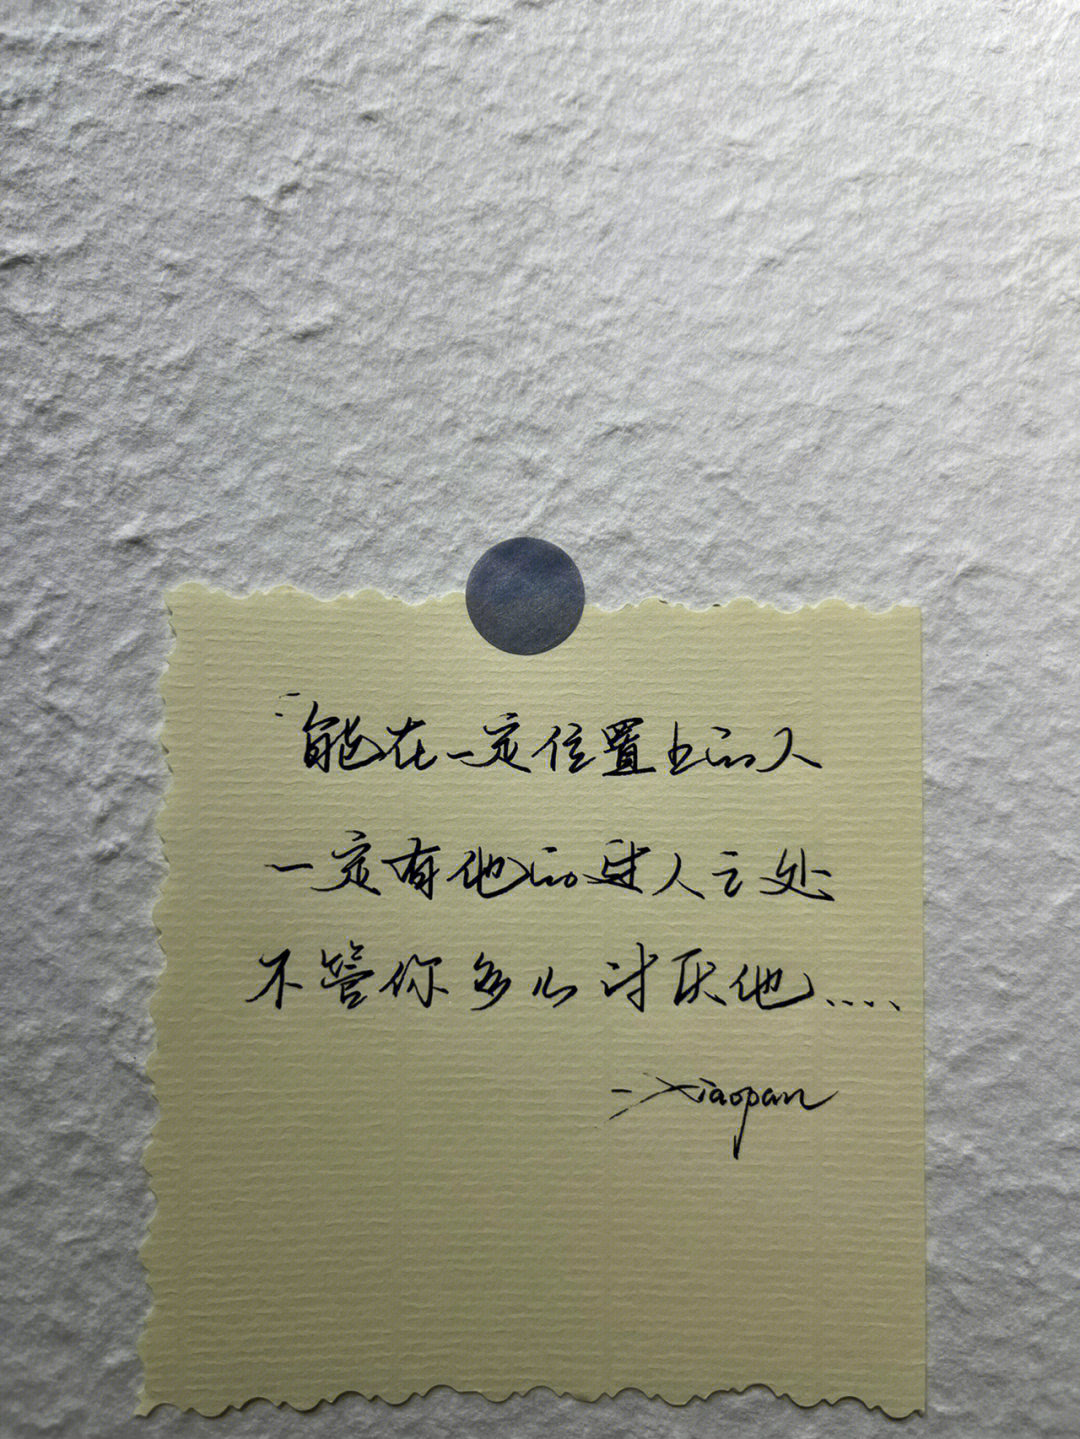 能在一定位置上的人
一定有他的过人之处
不管你多么讨厌他....
-Xiaopan